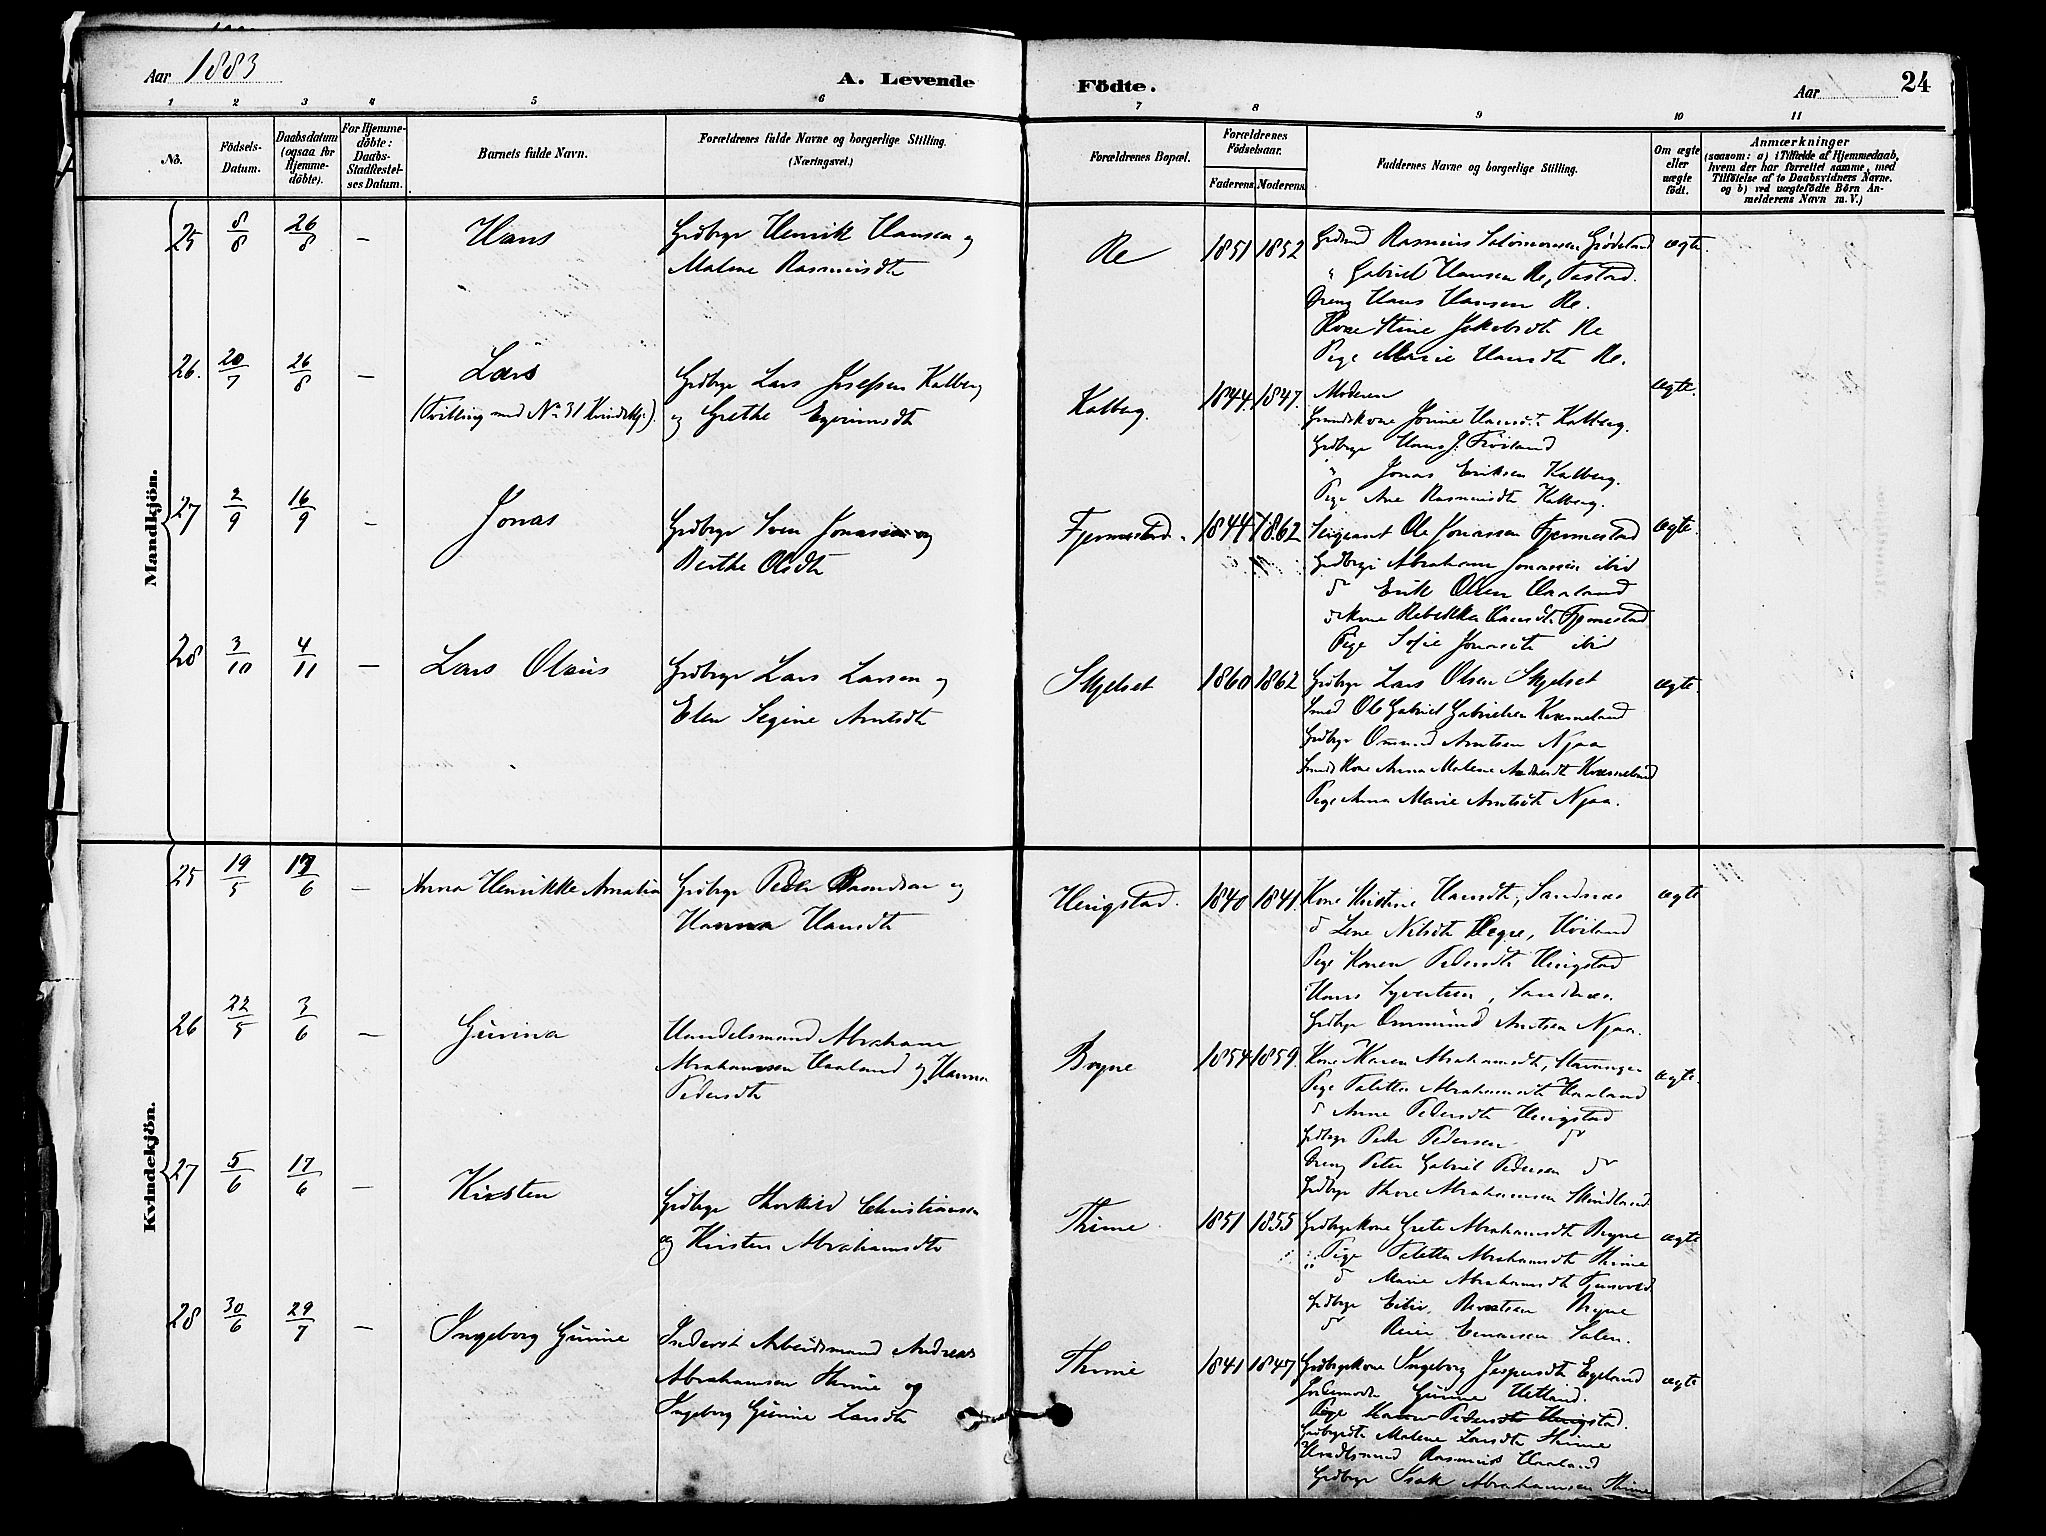 Aar 1883
A. Levende Födte.
Aar
24
1 2 3 4 5 6 7 8 9 10 11
No.
Födsels-Datum.
Daabsdatum (ogsaa for Hjemme-döbte).
For Hjemme-döbte: Daabs-Stadfestel-ses Datum.
Barnets fulde Navn.
Forældrenes fulde Navne og borgerlige Stilling.
(Næringsvei.)
Forældrenes Bopæl.
Forældrenes Födselsaar.
Faderens Moderens
Faddernes Navne og borgerlige Stilling.
Om ægte eller uægte födt.
Anmærkninger
(saasom: a) i Tilfælde af Hjemmedaab,
hvem der har forrettet samme, med
Tilföielse af to Daabsvidners Navne.
og b) ved uægtefödte Börn An-
melderens Navn m. V.)
Mandkjön.
25 8/8 26/8 — Hans
Grdbrgr Henrik Hansen og
Malene Rasmusdt
Re 1851 1852
Rasmus Salomonsen Grödeland
" Gabriel Hansen Re, Tastad.
Dreng Hans Hansen Re.
Kone Stine Jakobsdt Re
Pige Marie Hansdt Re.
ægte.
26. 20/7 26/8 — Lars
(Tvilling med No 31 Kvindekj.)
Grdbrgr Lars Josefsen Kalberg
og Grethe
Kalberg. 1844. 1847.
Moderen
Jorine Hansdt Kalberg.
Grdbrgr Hans J. Fröiland
" Jonas Eriksen Kalberg.
Pige Ane Rasmusdt Kalberg.
ægte.
27 2/9 16/9 — Jonas
Grdbrgr Sven Jonassen og
Berthe Olsdt
Fjermestad. 1844 1862
Sergeant Ole Jonassen Fjermestad
Grdbrgr Abraham Jonassen ibid
do Erik Olsen Haaland
do Kone Rebekka Hansdt. Fjermestad
Pige Sofie Jonasdt ibid
ægte.
28 3/10 4/11 — Lars Olaus
Grdbrgr Lars Larsen og
Elen Segine Arntsdt
Skjelset 1860 1862
Grdbrgr Lars Olsen Skjelset
Smed Ole Gabriel Gabrielsen Kverneland
Grdbrgr Ommund Arntsen Njaa
Smeds Kone Anna Malene Kverneland
Pige Anna Marie Arntsdt Njaa.
ægte.
Kvindekjön.
25 19/5 17/6 — Anna Henrikke Amalia
Grdbrgr Peder og
Hanna Hansdt
Hingstad. 1840 1841.
Kone Kristine Hansdt, Sandnæs
do Lene Nilsdt Hegre, Höiland
Pige Karen Pedersdt Hingstad
Hans Syvertsen, Sandnæs.
Grdbrgr Ommund Arntsen Njaa.
ægte
26 22/5 3/6 — Gurina
Handelsmand Abraham
Abrahamsen Haaland og Hanna
Pedersdt
Bryne 1854 1859.
Kone Karen Abrahamsdt, Stavanger
Pige Taletta Abrahamsdt Haaland
do Anne Pedersdt Hingstad
Grdbrgr Peder Pedersen do
Dreng Peter Gabriel Pedersen do
Grdbrgr Thore Abrahamsen
ægte.
27 5/6 17/6 — Kirsten
Grdbrgr Thorkild Christiansen
og Kirsten Abrahamsdt
Thime 1851 1855
Grdbrgrkone Grete Abrahamsdt Bryne
Pige Taletta Abrahamsdt Thime
do Marie Abrahamsdt
Grdbrgr Bryne
do Reier
ægte
28 30/6 29/7 — Ingeborg Gurine
Inderst Arbeidsmand Andreas
Abrahamsen Thime og
Ingeborg Gurine Larsdt
Thime 1841 1847
Grdbrgrkone Ingeborg Jespersdt Egeland
Jordemoder Gurine Hetland.
Pige Karen Pedersdt Hingstad.
Malene Larsdt Thime
Rasmus Haaland
Grdbrgr Isak Abrahamsen Thime
ægte